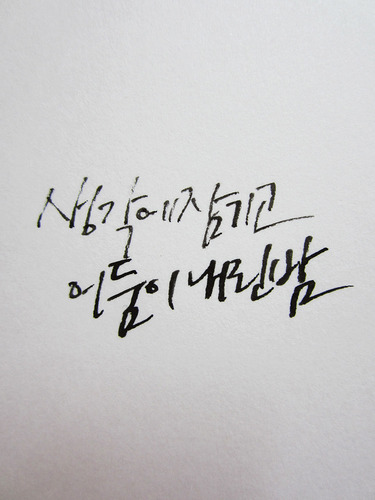 생각에 잠기고
어둠이 내린 밤